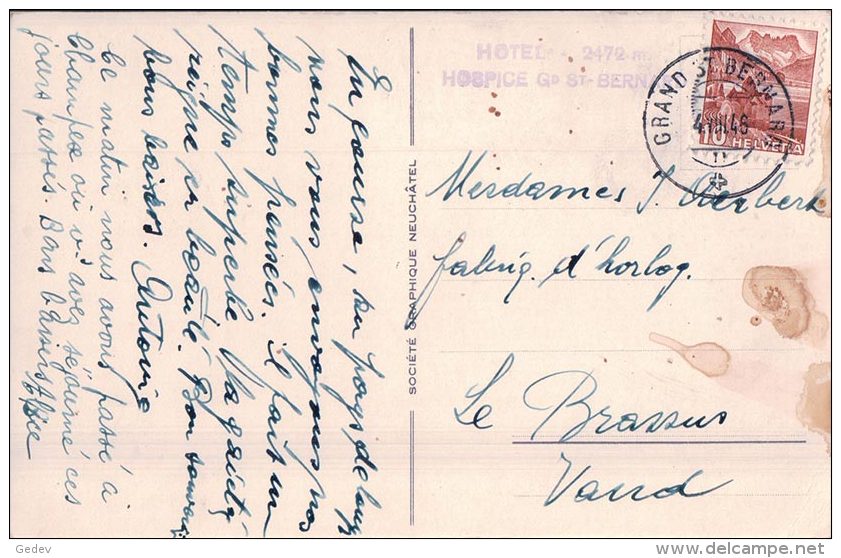 En course, du pays de loup
nous vous envoyons nos
bonnes pensées. il fait un
temps superbe la gaieté
règne en beauté. Bon souvenir
bons baisers. Antoine
Ce matin nous avons passé à
Champex où v's avez séjourné ces
jours passés. Bons baisers
HOTEL - 2472 m.
HOSPICE GD ST-BERNARD
GRAND ST BERNARD
4 VIII.46
10 HELVETIA
SOCIÉTÉ GRAPHIQUE NEUCHÂTEL
Mesdames J.
fabriq. d'horlog.
Le Brassus
Vaud
Gedev
www.delcampe.net